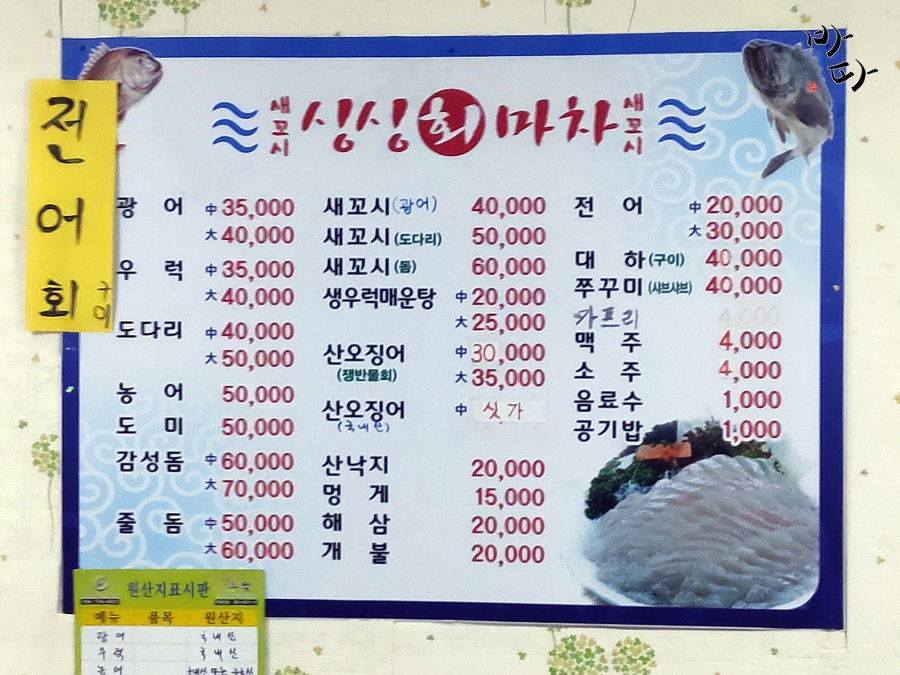 바다
전어회
구이
새꼬시 싱싱회마차 새꼬시
광어 中 35,000
大 40,000
우럭 中 35,000
大 40,000
도다리 中 40,000
大 50,000
농어 50,000
도미 50,000
감성돔 中 60,000
大 70,000
줄돔 中 50,000
大 60,000
새꼬시(광어) 40,000
새꼬시(도다리) 50,000
새꼬시(돔) 60,000
생우럭매운탕 中 20,000
大 25,000
산오징어 中 30,000
(쟁반물회) 大 35,000
산오징어 中 싯가
(국내산)
산낙지 20,000
멍게 15,000
해삼 20,000
개불 20,000
전어 中 20,000
大 30,000
대하(구이) 40,000
쭈꾸미(샤브샤브) 40,000
카프리 4,000
맥주 4,000
소주 4,000
음료수 1,000
공기밥 1,000
원산지표시판
메뉴 품목 원산지
광어 국내산
우럭 국내산
농어